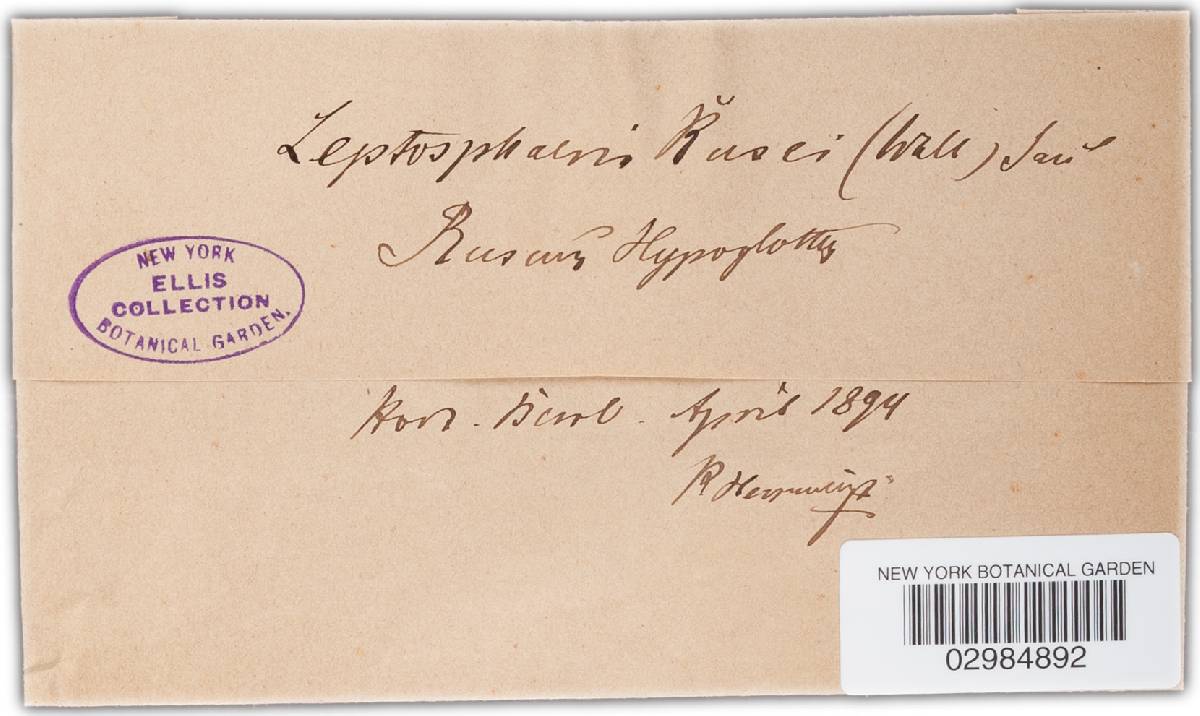 Leptosphaeria Rusci (Wallr) Sacc
Ruscus Hypoglottis
NEW YORK
ELLIS
COLLECTION
BOTANICAL GARDEN.
Hort. Berol. April 1894
P Hennings
NEW YORK BOTANICAL GARDEN
02984892